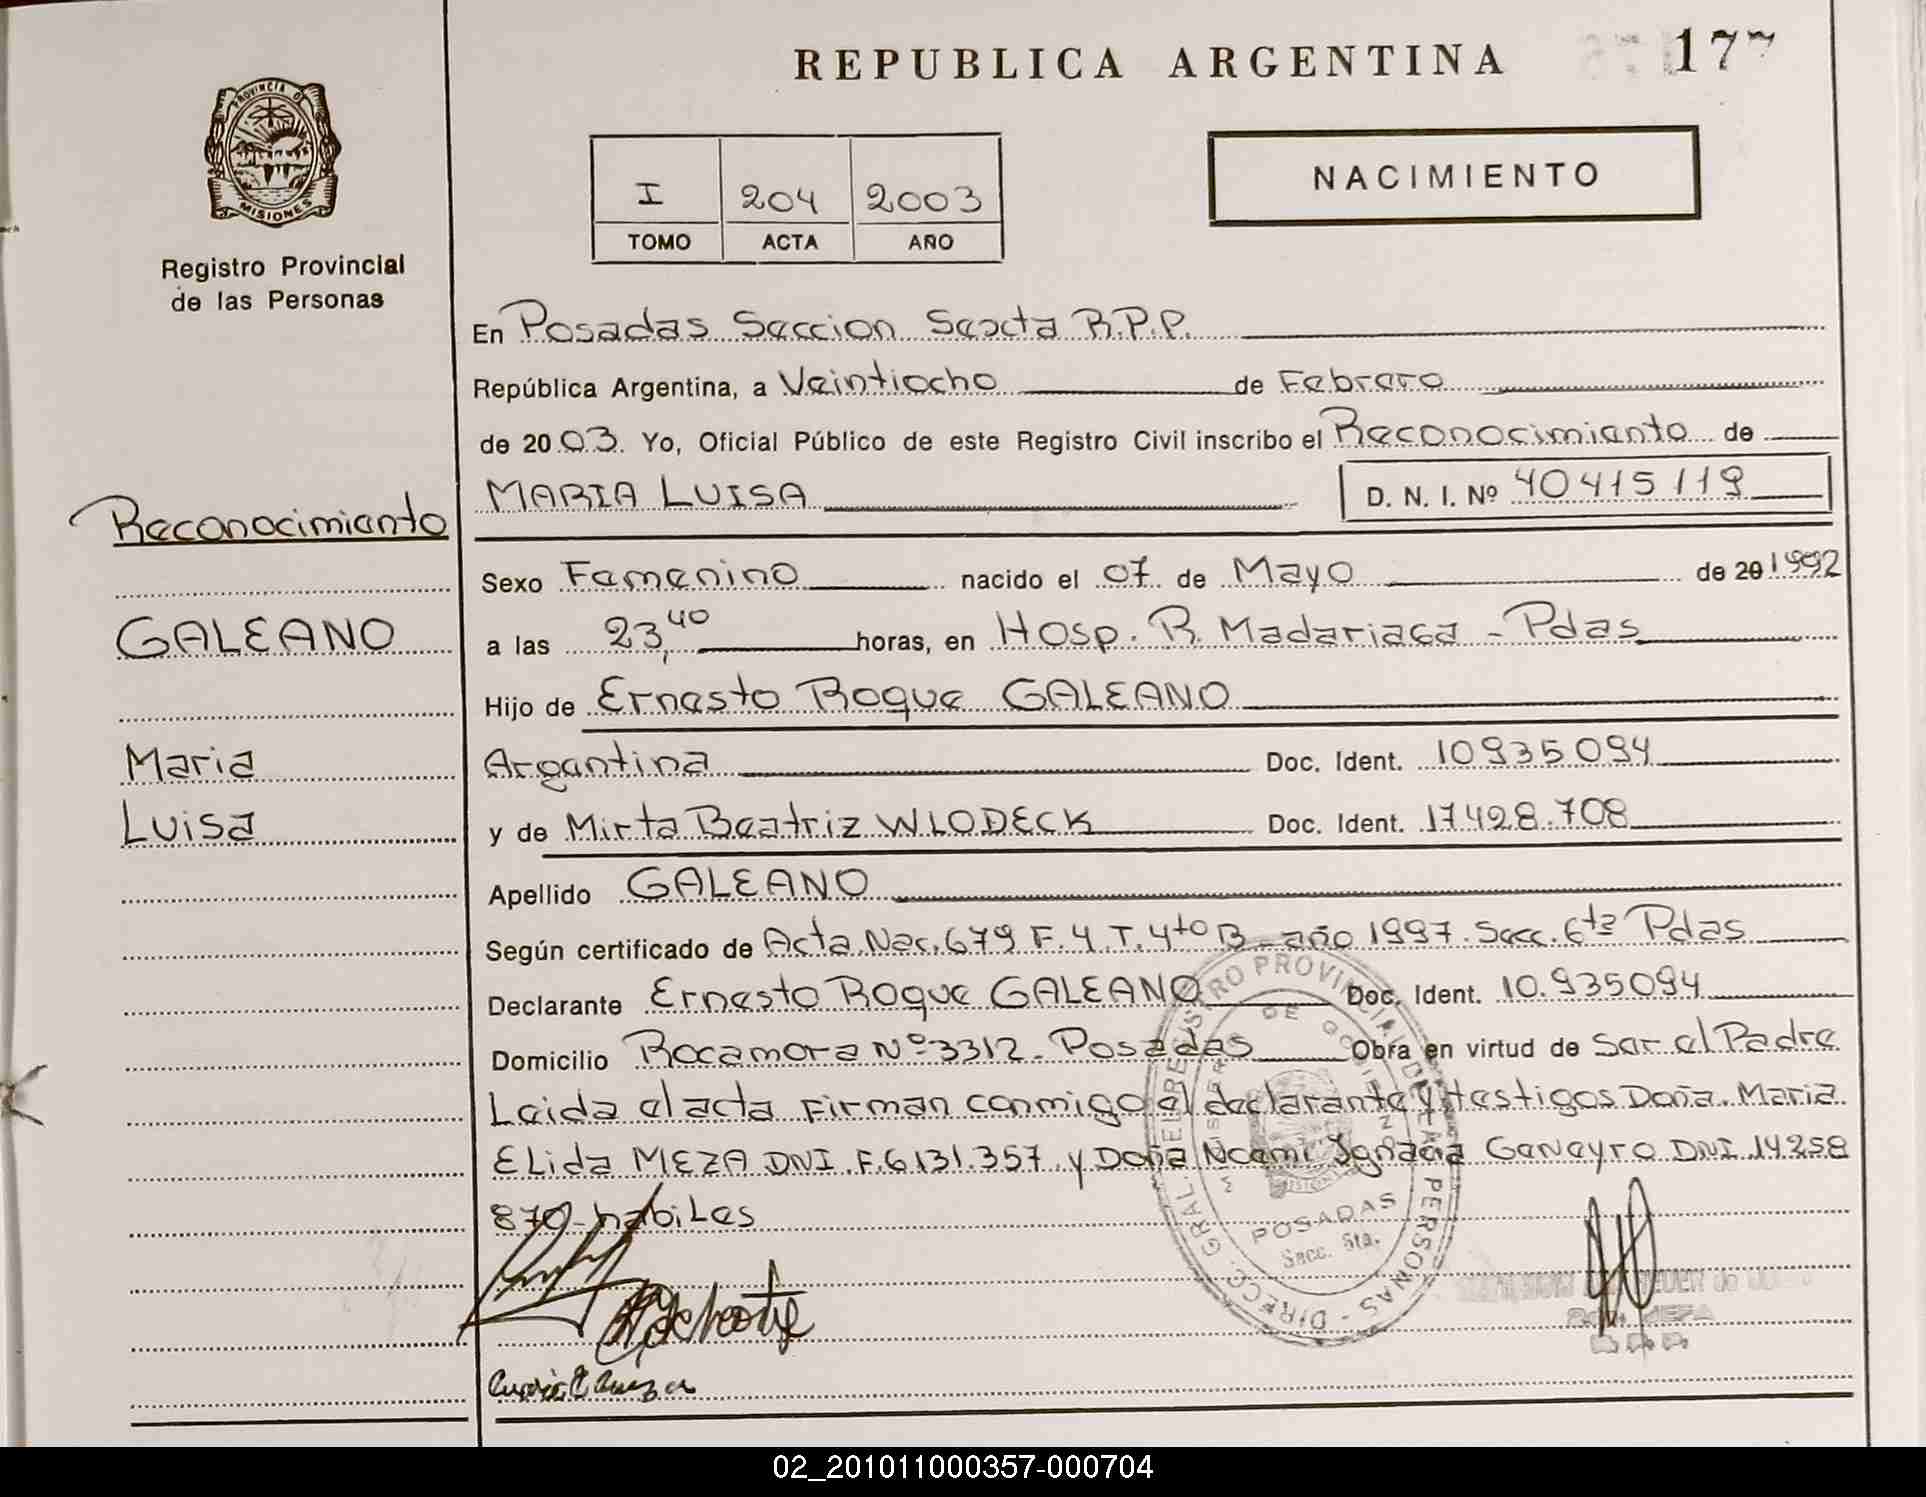 REPUBLICA ARGENTINA
177
PROVINCIA DE
MISIONES
Registro Provincial
de las Personas
I 204 2003
TOMO ACTA AÑO
NACIMIENTO
En Posadas Seccion Sexta R.P.P.
República Argentina, a Veintiocho de Febrero
de 2003. Yo, Oficial Público de este Registro Civil inscribo el Reconocimiento de
MARIA LUISA D. N. I. Nº 40415119
Reconocimiento
GALEANO
Maria
Luisa
Sexo Femenino nacido el 07 de Mayo de 20 1992
a las 23,40 horas, en Hosp. R. Madariaga - Pdas
Hijo de Ernesto Roque GALEANO
Argentina Doc. Ident. 10935094
y de Mirta Beatriz WLODECK Doc. Ident. 17428.708
Apellido GALEANO
Según certificado de Acta Nac. 679 F. 4 T. 4to B - año 1997. Secc. 6ta Pdas
Declarante Ernesto Roque GALEANO Doc. Ident. 10.935094
Domicilio Rocamora Nº 3312 - Posadas Obra en virtud de Ser el Padre
Leida el acta Firman conmigo el declarante y testigos Doña. Maria
ELida MEZA DNI F.6.131.357 y Doña Noemi Ignacia Geneyro DNI 14258
870 - habiLes
DIRECC. GRAL. DEL REGISTRO PROVINCIAL DE LAS PERSONAS
MINISTERIO DE GOBIERNO
POSADAS
Secc. 6ta.
R.P.P.
02_201011000357-000704